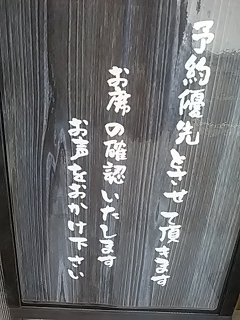 予約優先とさせて頂きます
お席の確認いたします
お声をおかけ下さい